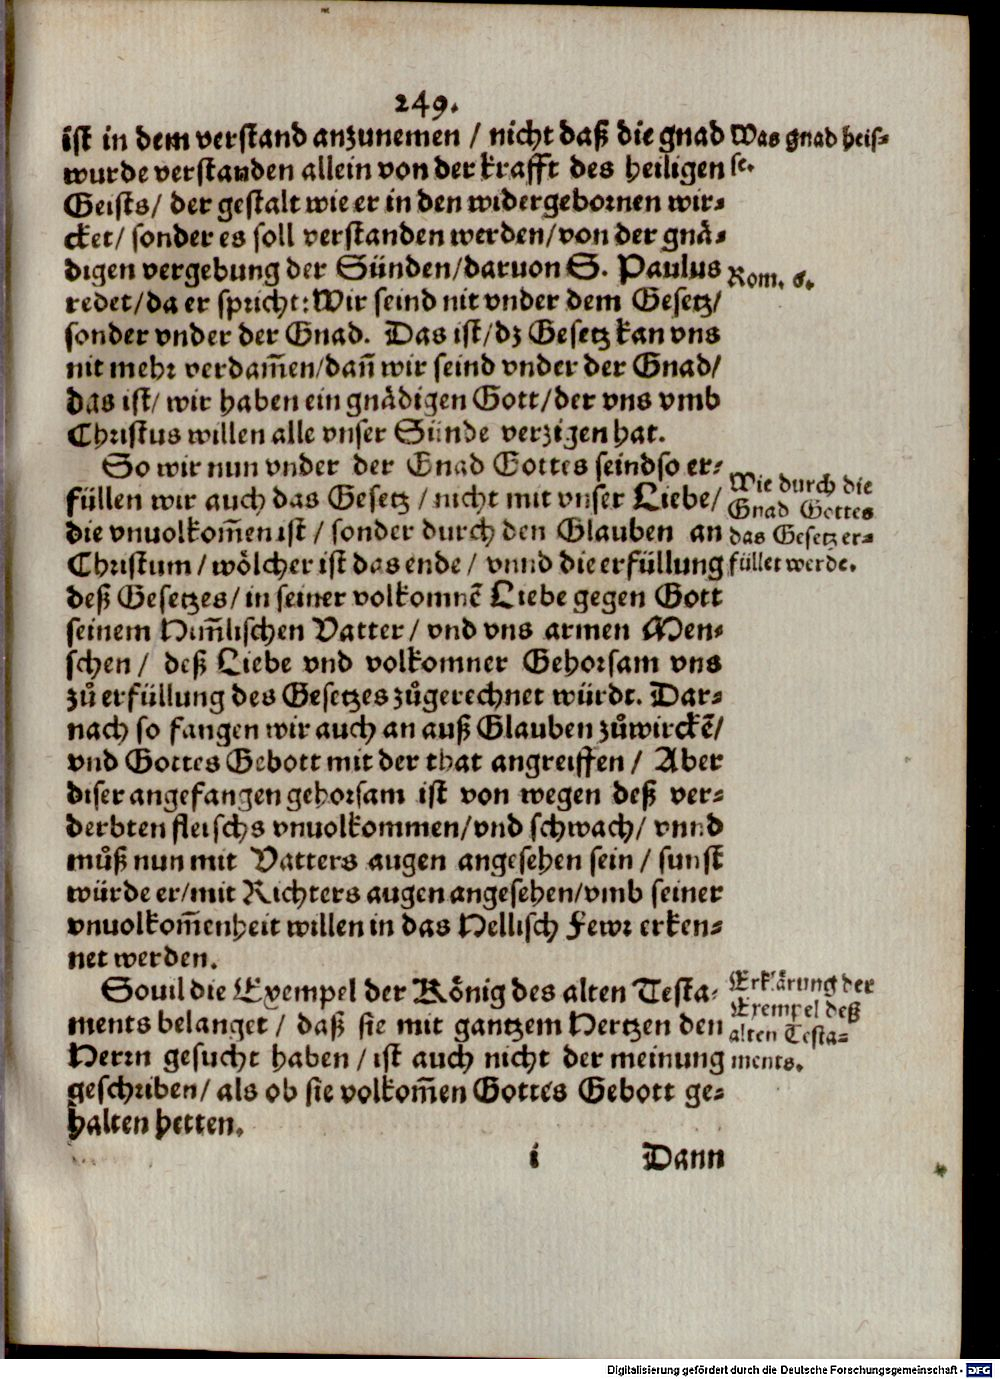 249.
ist in dem verstand anzunemen / nicht daß die gnad
wurde verstanden allein von der krafft des heiligen
Geists/ der gestalt wie er in den widergebornen wir-
cket/ sonder es soll verstanden werden/von der gnä-
digen vergebung der Sünden/daruon S. Paulus
redet/da er spricht:Wir seind nit vnder dem Gesetz/
sonder vnder der Gnad. Das ist/dz Gesetz kan vns
nit mehr verdam̅en/dan̅ wir seind vnder der Gnad/
das ist/ wir haben ein gnädigen Gott/der vns vmb
Christus willen alle vnser Sünde verzigen hat.
So wir nun vnder der Gnad Gottes seind so er-
füllen wir auch das Gesetz / nicht mit vnser Liebe/
die vnuolkom̅en ist / sonder durch den Glauben an
Christum / wölcher ist das ende / vnnd die erfüllung
deß Gesetzes/ in seiner volkomne̅ Liebe gegen Gott
seinem Him̅lischen Vatter / vnd vns armen Men-
schen / deß Liebe vnd volkomner Gehorsam vns
zů erfüllung des Gesetzes zůgerechnet würdt. Dar-
nach so fangen wir auch an auß Glauben zůwircke̅/
vnd Gottes Gebott mit der that angreiffen / Aber
diser angefangen gehorsam ist von wegen deß ver-
derbten fleischs vnuolkommen/vnd schwach/ vnnd
můß nun mit Vatters augen angesehen sein / sunst
würde er/mit Richters augen angesehen/vmb seiner
vnuolkom̅enheit willen in das Hellisch Fewr erken-
net werden.
Souil die Exempel der König des alten Testa-
ments belanget / daß sie mit gantzem Hertzen den
Herrn gesucht haben / ist auch nicht der meinung
geschriben/ als ob sie volkom̅en Gottes Gebott ge-
halten hetten.
i Dann
Was gnad heis-
se.
Rom. 6.
Wie durch die
Gnad Gottes
das Gesetz er-
füllet werde.
Erklärung der
Exempel deß
alten Testa-
ments.
Digitalisierung gefördert durch die Deutsche Forschungsgemeinschaft - DFG